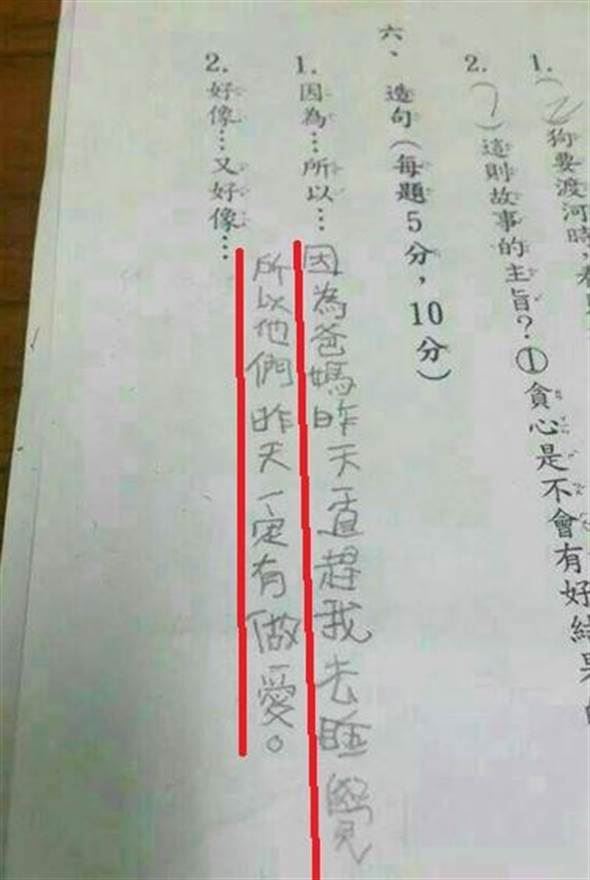 1.(2)狗要渡河時,看
2.( )這則故事的主旨?①貪心是不會有好結果
六、造句(每題5分,10分)
1.因為…所以…因為爸媽昨天一直趕我去睡覺
所以他們昨天一定有做愛。
2.好像…又好像…